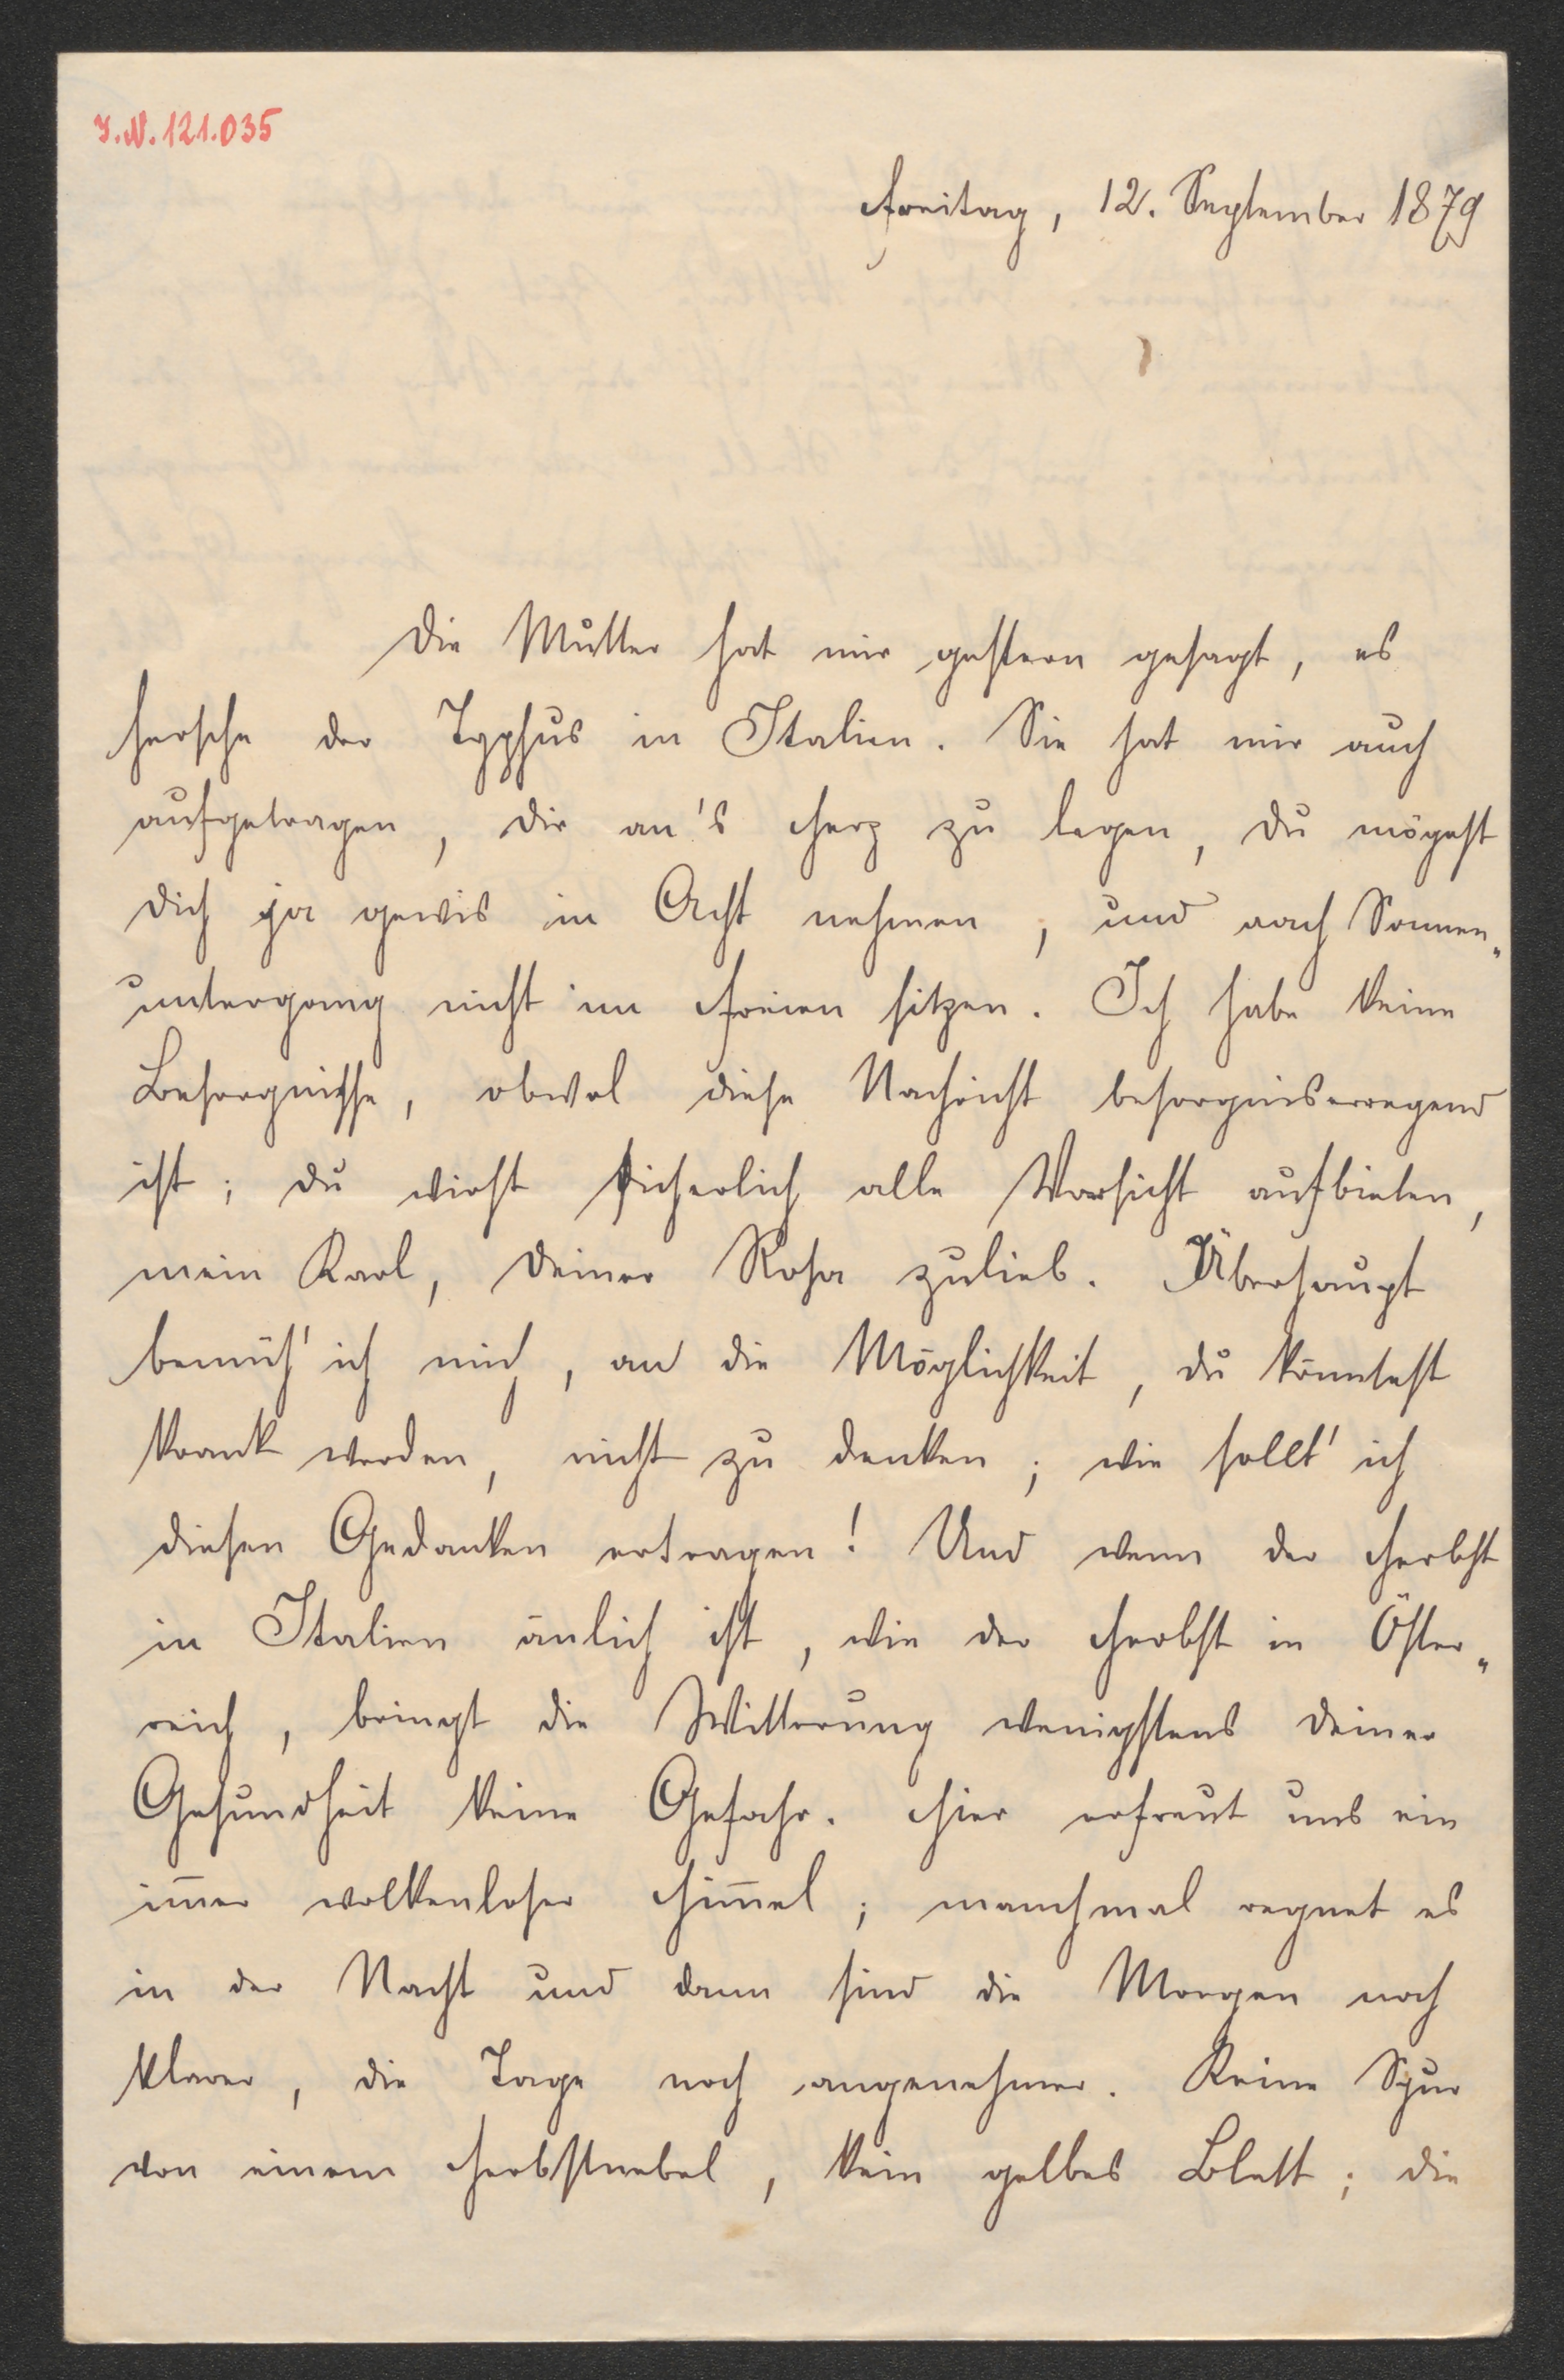 I.N. 121.035
Freitag, 12. September 1879
Die Mutter hat mir gestern gesagt, es
hersche der Typhus in Italien. Sie hat mir auch
aufgetragen, dir an's Herz zu legen, du mögest
dich ja gewis in Acht nehmen, und nach Sonnen„
untergang nicht im Freien sitzen. Ich habe keine
Besorgnisse, obwol diese Nachricht besorgniserregend
ist; du wirst sicherlich alle Vorsicht aufbieten,
mein Karl, deiner Rosa zulieb. Überhaupt
bemüh' ich mich, an die Möglichkeit, du könntest
krank werden, nicht zu denken; wie sollt' ich
diesen Gedanken ertragen! Und wenn der Herbst
in Italien änlich ist, wie der Herbst in Öster„
reich, bringt die Witterung wenigstens deiner
Gesundheit keine Gefahr. Hier erfreut uns ein
im̅er wolkenloser Him̅el; manchmal regnet es
in der Nacht und dann sind die Morgen noch
klarer, die Tage noch angenehmer. Keine Spur
von einem Herbstnebel, kein gelbes Blatt; die